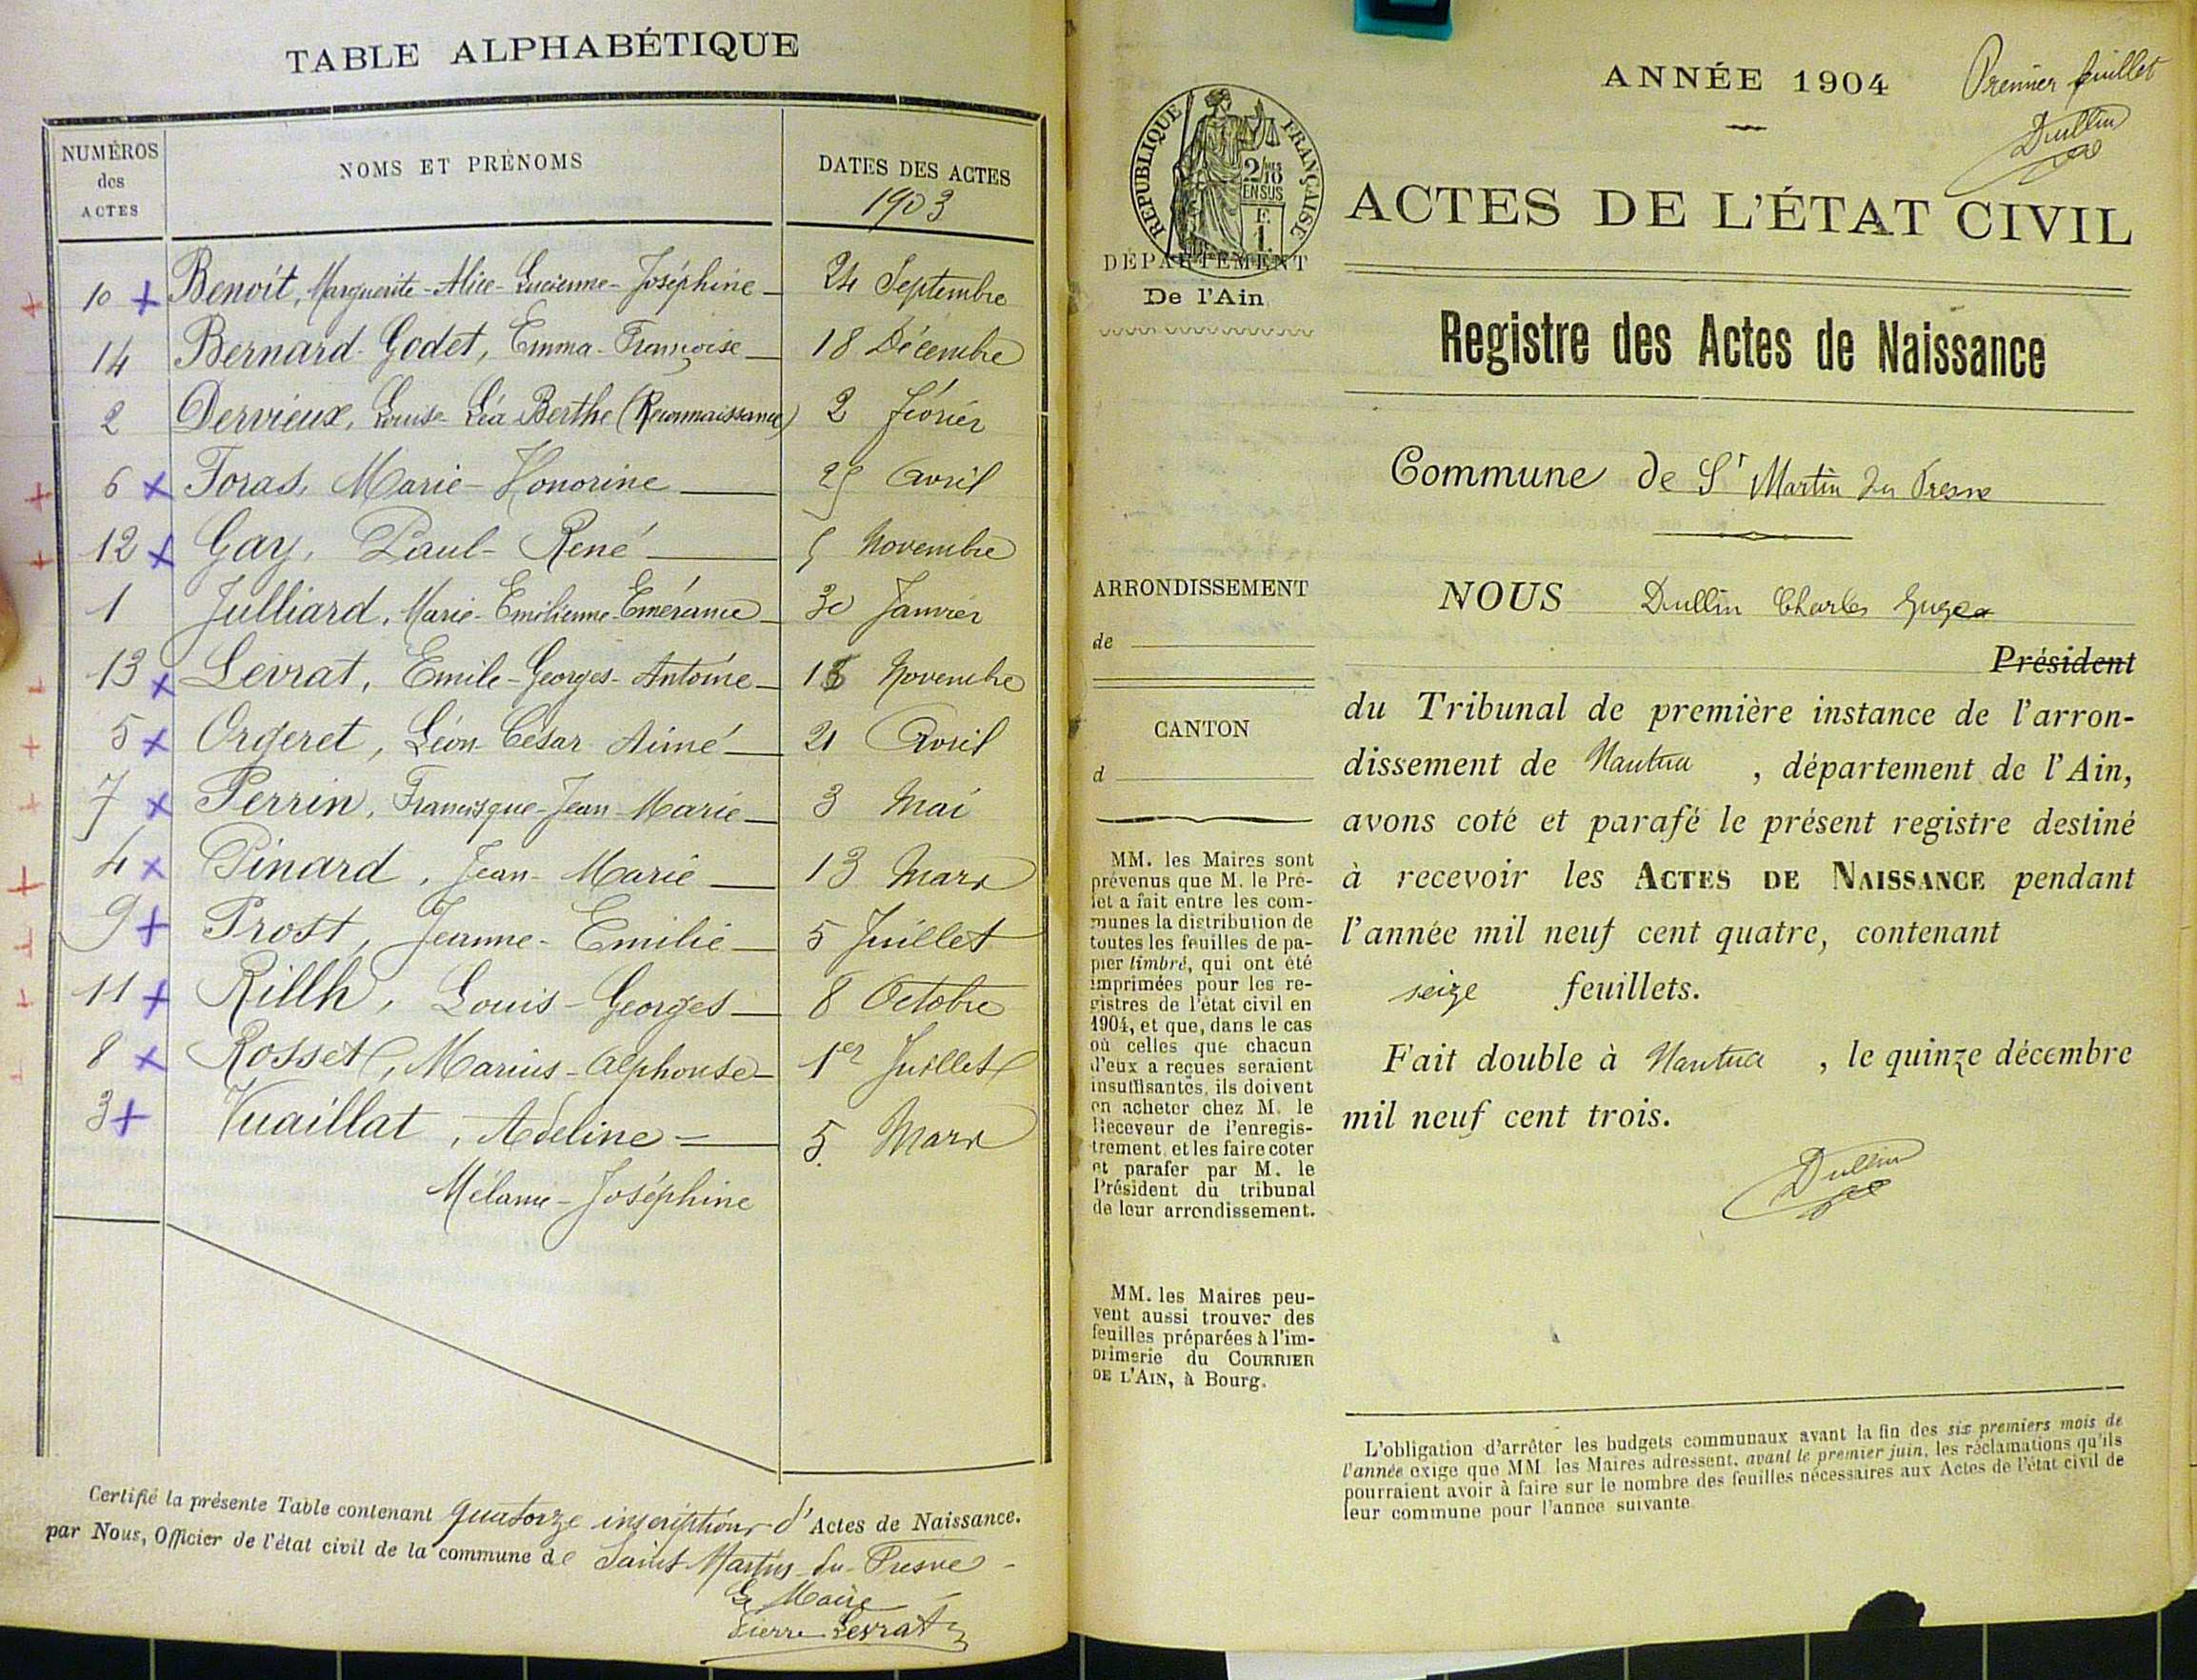 TABLE ALPHABÉTIQUE
NUMÉROS des ACTES
NOMS ET PRÉNOMS
DATES DES ACTES
1903
10 Benoît, Marguerite-Alice-Lucienne-Joséphine 24 Septembre
14 Bernard-Godet, Emma-Françoise 18 Décembre
2 Dervieux, Louise-Léa Berthe (Reconnaissance) 2 Février
6 Foras, Marie-Honorine 25 Avril
12 Gay, Paul-René 5 Novembre
1 Julliard, Marie-Emilienne-Emérance 30 Janvier
13 Levrat, Emile-Georges-Antoine Novembre
5 Orgeret, Léon-César-Aimé 21 Avril
7 Perrin, Francisque-Jean-Marie 3 Mai
4 Pinard, Jean-Marie 13 Mars
9 Prost, Jeanne-Emilie 5 Juillet
11 Rillh, Louis-Georges 8 Octobre
8 Rosset, Marius-Alphonse 1er Juillet
3 Vuaillat, Adeline 5 Mars
Mélanie-Joséphine
Certifié la présente Table contenant quatorze inscriptions d'Actes de Naissance.
par Nous, Officier de l'état civil de la commune de Saint-Martin-du-Fresne
Le Maire
Pierre Levrat
ANNÉE 1904
Premier feuillet
Dullin
RÉPUBLIQUE FRANÇAISE
2/10 MES
EN SUS
1 F.
ACTES DE L'ÉTAT CIVIL
DÉPARTEMENT
De l'Ain
Registre des Actes de Naissance
Commune de St Martin du Fresne
ARRONDISSEMENT
de
CANTON
d
MM. les Maires sont
prévenus que M. le Pré-
fet a fait entre les com-
munes la distribution de
toutes les feuilles de pa-
pier timbré, qui ont été
imprimées pour les re-
gistres de l'état civil en
1904, et que, dans le cas
où celles que chacun
d'eux a reçues seraient
insuffisantes, ils doivent
en acheter chez M. le
Receveur de l'enregis-
trement, et les faire coter
et parafer par M. le
Président du tribunal
de leur arrondissement.
MM. les Maires peu-
vent aussi trouver des
feuilles préparées à l'im-
primerie du COURRIER
DE L'AIN, à Bourg.
NOUS Dullin Charles Juge
Président
du Tribunal de première instance de l'arron-
dissement de Nantua , département de l'Ain,
avons coté et parafé le présent registre destiné
à recevoir les ACTES DE NAISSANCE pendant
l'année mil neuf cent quatre, contenant
seize feuillets.
Fait double à Nantua , le quinze décembre
mil neuf cent trois.
Dullin
L'obligation d'arrêter les budgets communaux avant la fin des six premiers mois de
l'année exige que MM. les Maires adressent, avant le premier juin, les réclamations qu'ils
pourraient avoir à faire sur le nombre des feuilles nécessaires aux Actes de l'état civil de
leur commune pour l'année suivante.